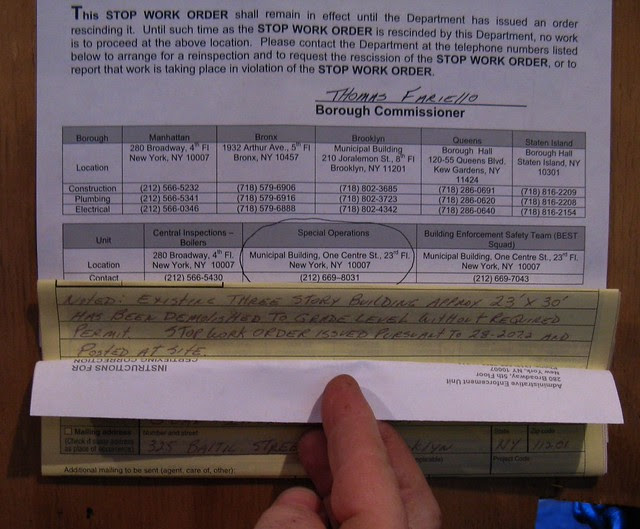 This STOP WORK ORDER shall remain in effect until the Department has issued an order
rescinding it. Until such time as the STOP WORK ORDER is rescinded by this Department, no work
is to proceed at the above location. Please contact the Department at the telephone numbers listed
below to arrange for a reinspection and to request the rescission of the STOP WORK ORDER, or to
report that work is taking place in violation of the STOP WORK ORDER.
THOMAS FARIELLO
Borough Commissioner
Borough Manhattan Bronx Brooklyn Queens Staten Island
Location 280 Broadway, 4th Fl 1932 Arthur Ave., 5th Fl Municipal Building Borough Hall Borough Hall
New York, NY 10007 Bronx, NY 10457 210 Joralemon St., 8th Fl 120-55 Queens Blvd. Staten Island, NY
Brooklyn, NY 11201 Kew Gardens, NY 10301
11424
Construction (212) 566-5232 (718) 579-6906 (718) 802-3685 (718) 286-0691 (718) 816-2209
Plumbing (212) 566-5341 (718) 579-6916 (718) 802-3723 (718) 286-0620 (718) 816-2208
Electrical (212) 566-0346 (718) 579-6888 (718) 802-4342 (718) 286-0640 (718) 816-2154
Unit Central Inspections – Boilers Special Operations Building Enforcement Safety Team (BEST Squad)
Location 280 Broadway, 4th Fl. Municipal Building, One Centre St., 23rd Fl. Municipal Building, One Centre St., 23rd Fl.
New York, NY 10007 New York, NY 10007 New York, NY 10007
Contact (212) 566-5430 (212) 669–8031 (212) 669-7043
NOTED: EXISTING THREE STORY BUILDING APPROX 23' X 30'
HAS BEEN DEMOLISHED TO GRADE LEVEL WITHOUT REQUIRED
PERMIT. STOP WORK ORDER ISSUED PURSUANT TO 28-207.2 AND
POSTED AT SITE.
INSTRUCTIONS FOR
CERTIFYING CORRECTION
Administrative Enforcement Unit
280 Broadway, 5th Floor
New York, NY 10007
Mailing address Number and street State Zip code
325 BALTIC STREE KLYN NY 11201
Project Code
Additional mailing to be sent (agent, care of, other):